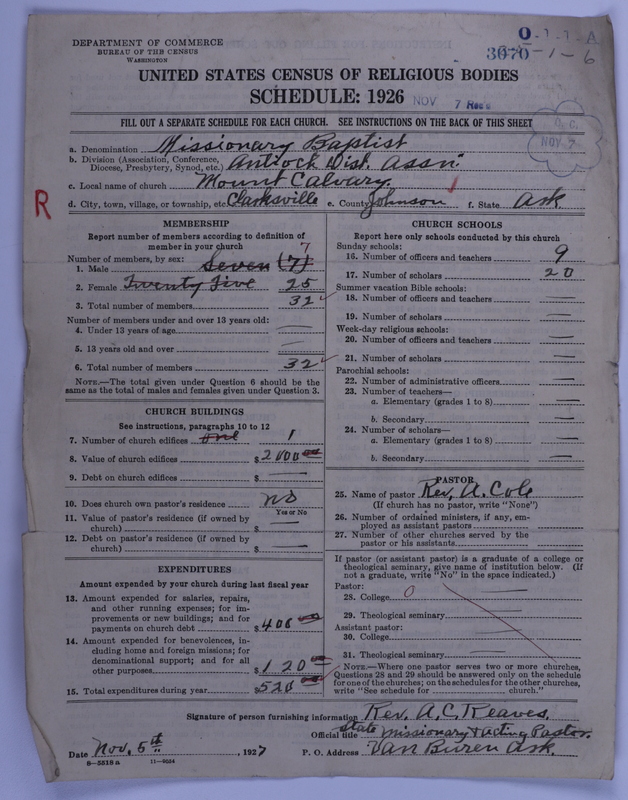 DEPARTMENT OF COMMERCE
BUREAU OF THE CENSUS
WASHINGTON
3670
0-7-7-A
-1-6
UNITED STATES CENSUS OF RELIGIOUS BODIES
SCHEDULE: 1926
NOV 7
FILL OUT A SEPARATE SCHEDULE FOR EACH CHURCH. SEE INSTRUCTIONS ON THE BACK OF THIS SHEET
NOV 7
a. Denomination Missionary Baptist
b. Division (Association, Conference, Diocese, Presbytery, Synod, etc.) Antioch Dist. Assn.
c. Local name of church Mount Calvary
d. City, town, village, or township, etc. Clarksville e. County Johnson f. State Ark
R
MEMBERSHIP
Report number of members according to definition of
member in your church
Number of members, by sex:
1. Male Seven (7) 7
2. Female Twenty Five 25
3. Total number of members 32
Number of members under and over 13 years old:
4. Under 13 years of age —
5. 13 years old and over —
6. Total number of members 32
NOTE.—The total given under Question 6 should be the
same as the total of males and females given under Question 3.
CHURCH BUILDINGS
See instructions, paragraphs 10 to 12
7. Number of church edifices one 1
8. Value of church edifices $2000 00
9. Debt on church edifices $ —
10. Does church own pastor's residence no
Yes or No
11. Value of pastor's residence (if owned by
church) $ —
12. Debt on pastor's residence (if owned by
church) $ —
EXPENDITURES
Amount expended by your church during last fiscal year
13. Amount expended for salaries, repairs,
and other running expenses; for im-
provements or new buildings; and for
payments on church debt $400 00
14. Amount expended for benevolences, in-
cluding home and foreign missions; for
denominational support; and for all
other purposes $120 00
15. Total expenditures during year $520 00
CHURCH SCHOOLS
Report here only schools conducted by this church
Sunday schools:
16. Number of officers and teachers 9
17. Number of scholars 20
Summer vacation Bible schools:
18. Number of officers and teachers —
19. Number of scholars —
Week-day religious schools:
20. Number of officers and teachers —
21. Number of scholars —
Parochial schools:
22. Number of administrative officers —
23. Number of teachers—
a. Elementary (grades 1 to 8) —
b. Secondary —
24. Number of scholars—
a. Elementary (grades 1 to 8) —
b. Secondary —
PASTOR
25. Name of pastor Rev. A. Cole
(If church has no pastor, write "None")
26. Number of ordained ministers, if any, em-
ployed as assistant pastors
27. Number of other churches served by the
pastor or his assistants
If pastor (or assistant pastor) is a graduate of a college or
theological seminary, give name of institution below. (If
not a graduate, write "No" in the space indicated.)
Pastor:
28. College 0
29. Theological seminary
Assistant pastor:
30. College
31. Theological seminary
NOTE.—Where one pastor serves two or more churches,
Questions 28 and 29 should be answered only on the schedule
for one of the churches; on the schedules for the other churches,
write "See schedule for church."
Signature of person furnishing information Rev. A. C. Reaves.
Official title State Missionary & Acting Pastor.
Date Nov. 5th, 1927 P. O. Address Van Buren Ark.
8—5518 a 11—9024